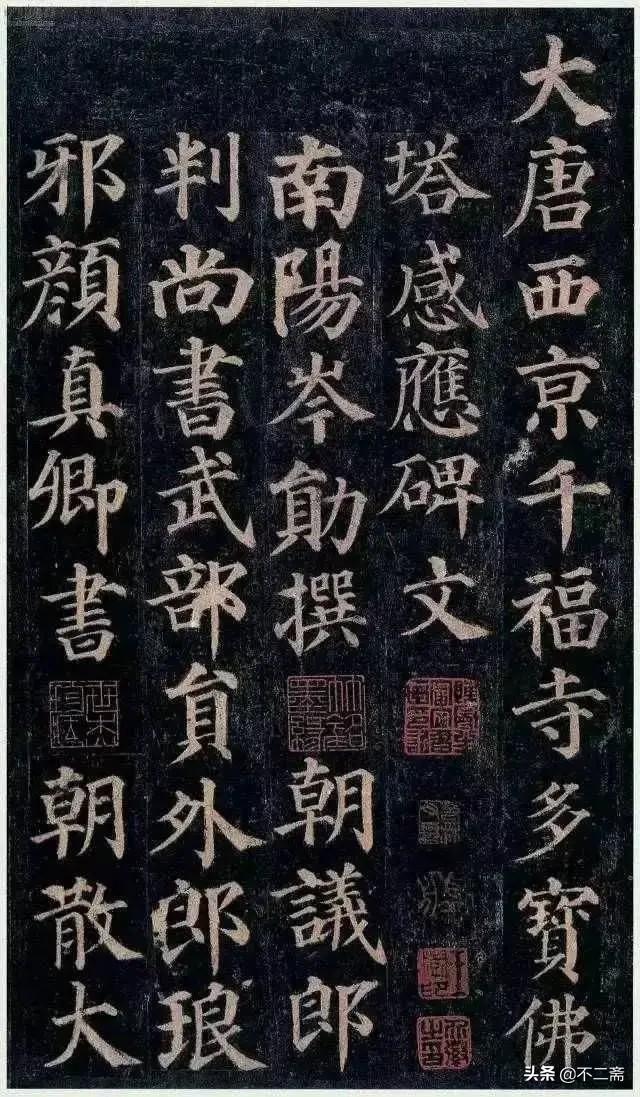 大唐西京千福寺多寶佛
塔感應碑文
南陽岑勛撰 朝議郎
判尚書武部員外郎琅
邪顏真卿書 朝散大
头条 @不二斋